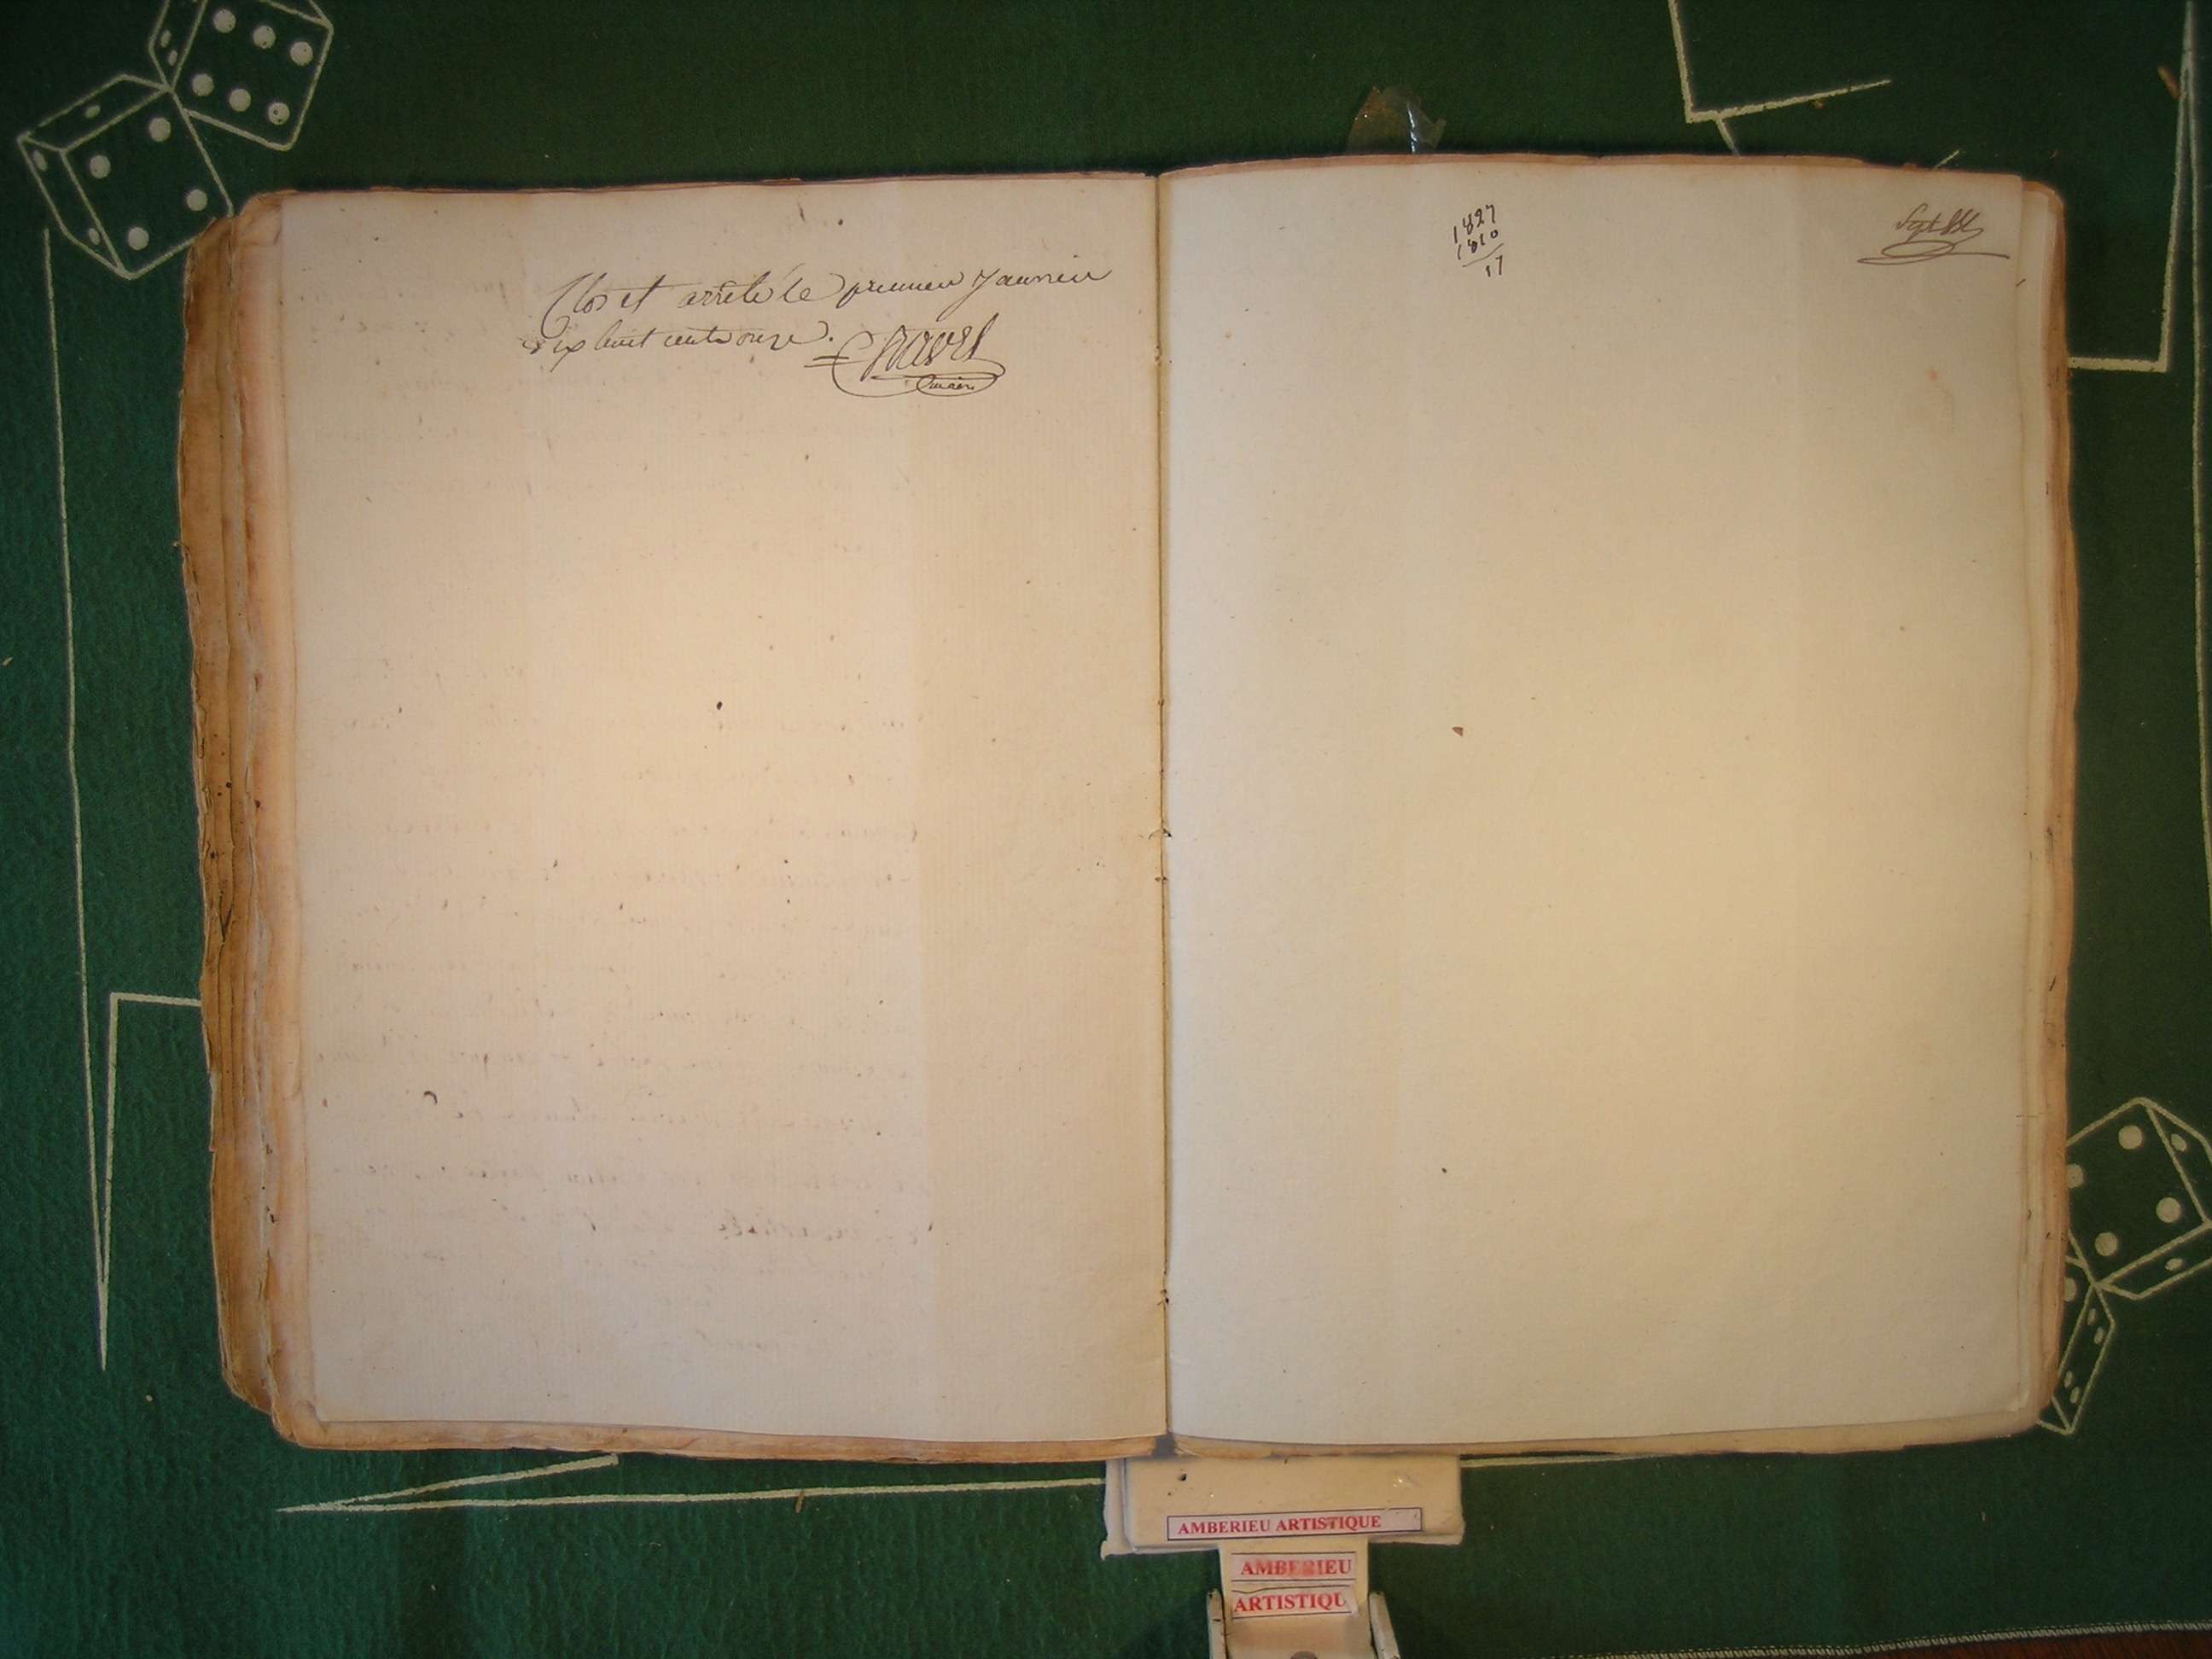 Clos et arrêté le premier Janvier
dix huit cent onze. Ravet
maire
1827
1810
17
AMBERIEU ARTISTIQUE
AMBERIEU
ARTISTIQU